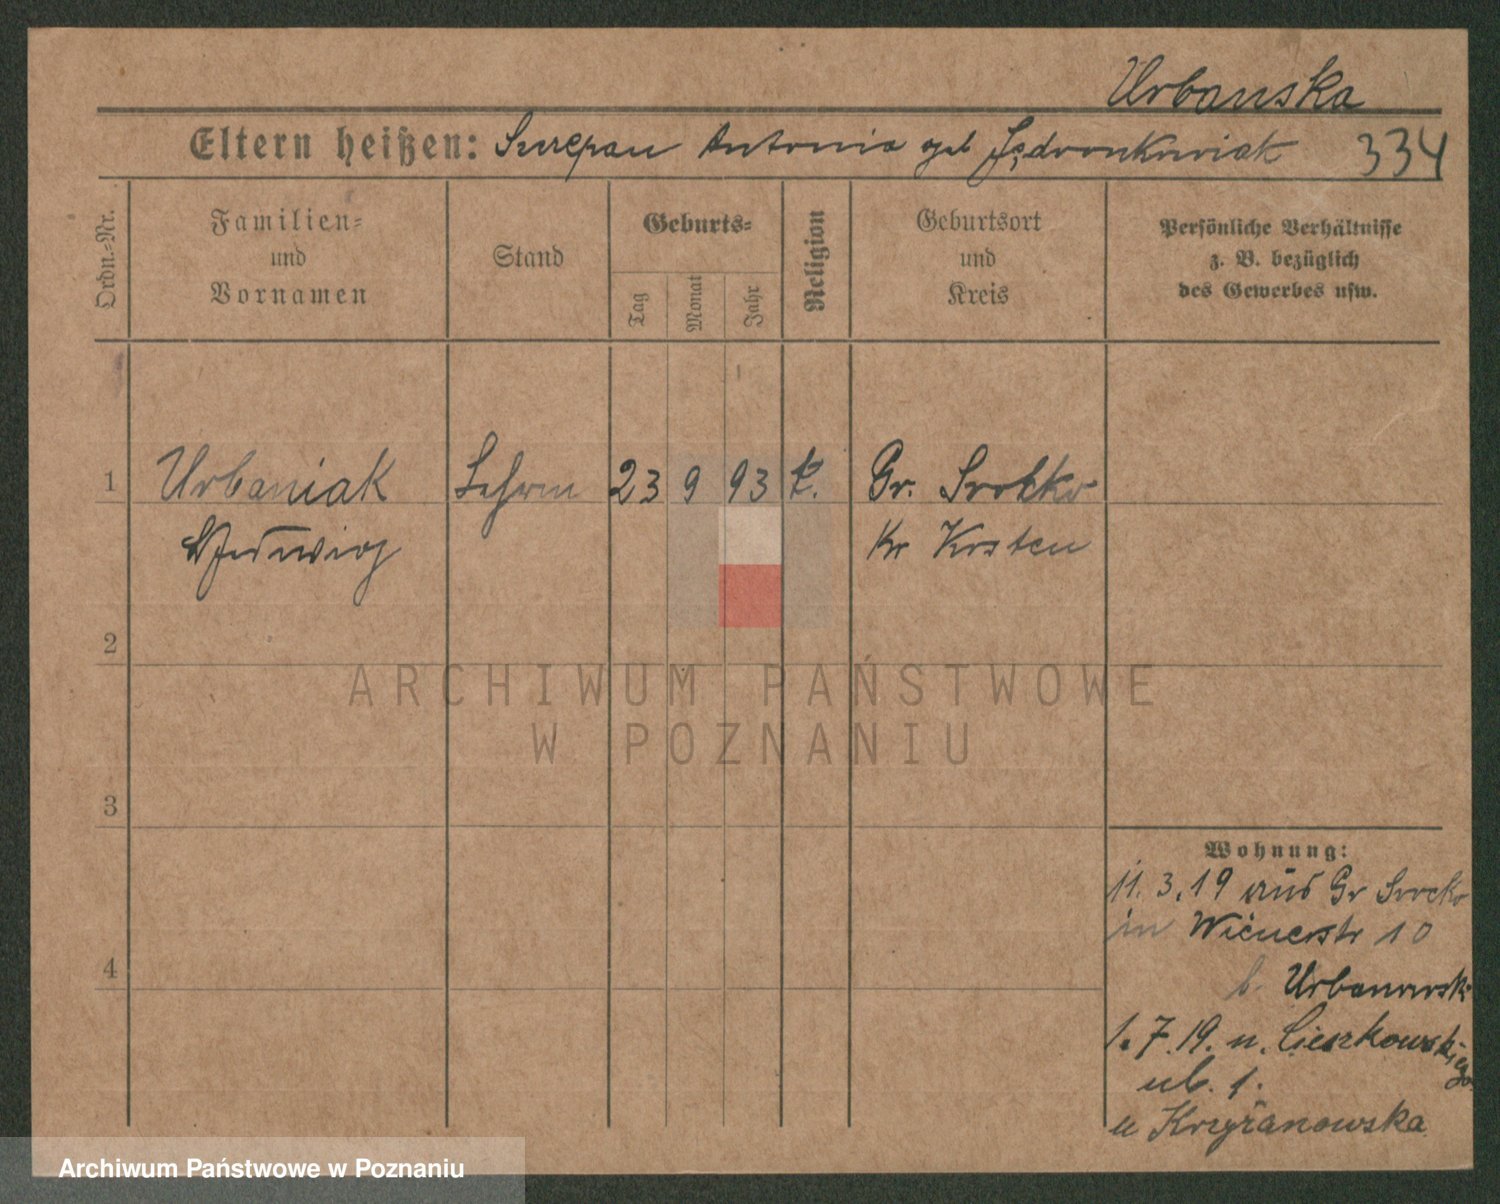 Urbanska
Eltern heißen: Szczepan Antonia geb Jędroszkowiak 334
Ordn.-Nr.
Familien-
und
Vornamen
Stand
Geburts-
Tag
Monat
Jahr
Religion
Geburtsort
und
Kreis
Persönliche Verhältnisse
z. B. bezüglich
des Gewerbes usw.
1 Urbaniak 23 9 93 k. Gr. Srocko
Hedwig Kr Kosten
2
ARCHIWUM PAŃSTWOWE
W POZNANIU
3
Wohnung:
11. 3. 19 aus Gr Srocko
in Wienerstr 10
b. Urbanowsk
4
1. 7. 19. u. Cieszkowskiego
ul. 1.
u Krzyżanowska
Archiwum Państwowe w Poznaniu